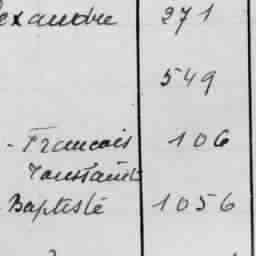 exandre 271
549
- Francois 106
Toussaint
Baptiste 1056